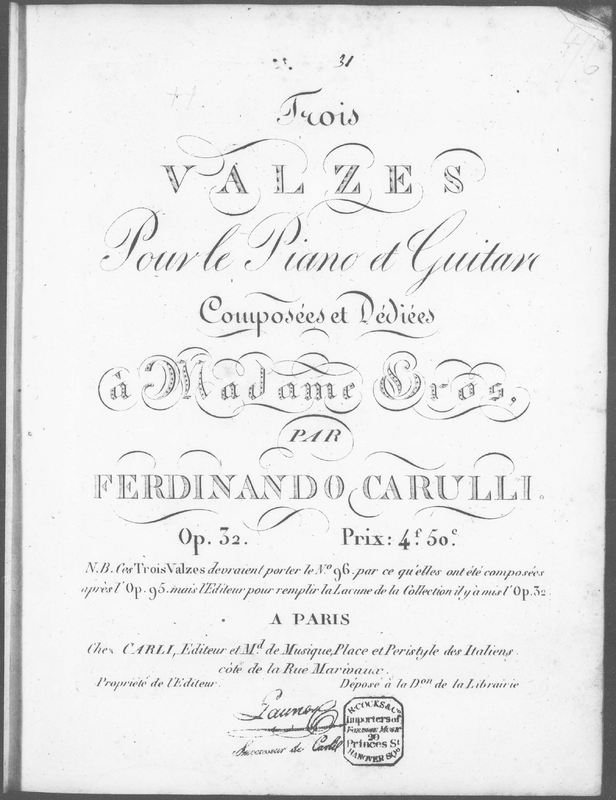 31
Trois
VALZES
Pour le Piano et Guitare
Composées et Dédiées
à Madame Gros,
PAR
FERDINANDO CARULLI.
Op. 32. Prix: 4f. 50c.
N.B. Ces Trois Valzes devraient porter le No. 96. par ce qu'elles ont été composées
après l'Op. 95. mais l'Editeur pour remplir la Lacune de la Collection il y à mis l'Op. 32.
A PARIS
Chez CARLI, Editeur et Md. de Musique, Place et Peristyle des Italiens
côté de la Rue Marivaux.
Propriété de l'Editeur. Déposé à la Don. de la Librairie
Successeur de Carli
R. COCKS & Co.
Importers of
FOREIGN MUSIC
20
Princes St.
HANOVER SQe.